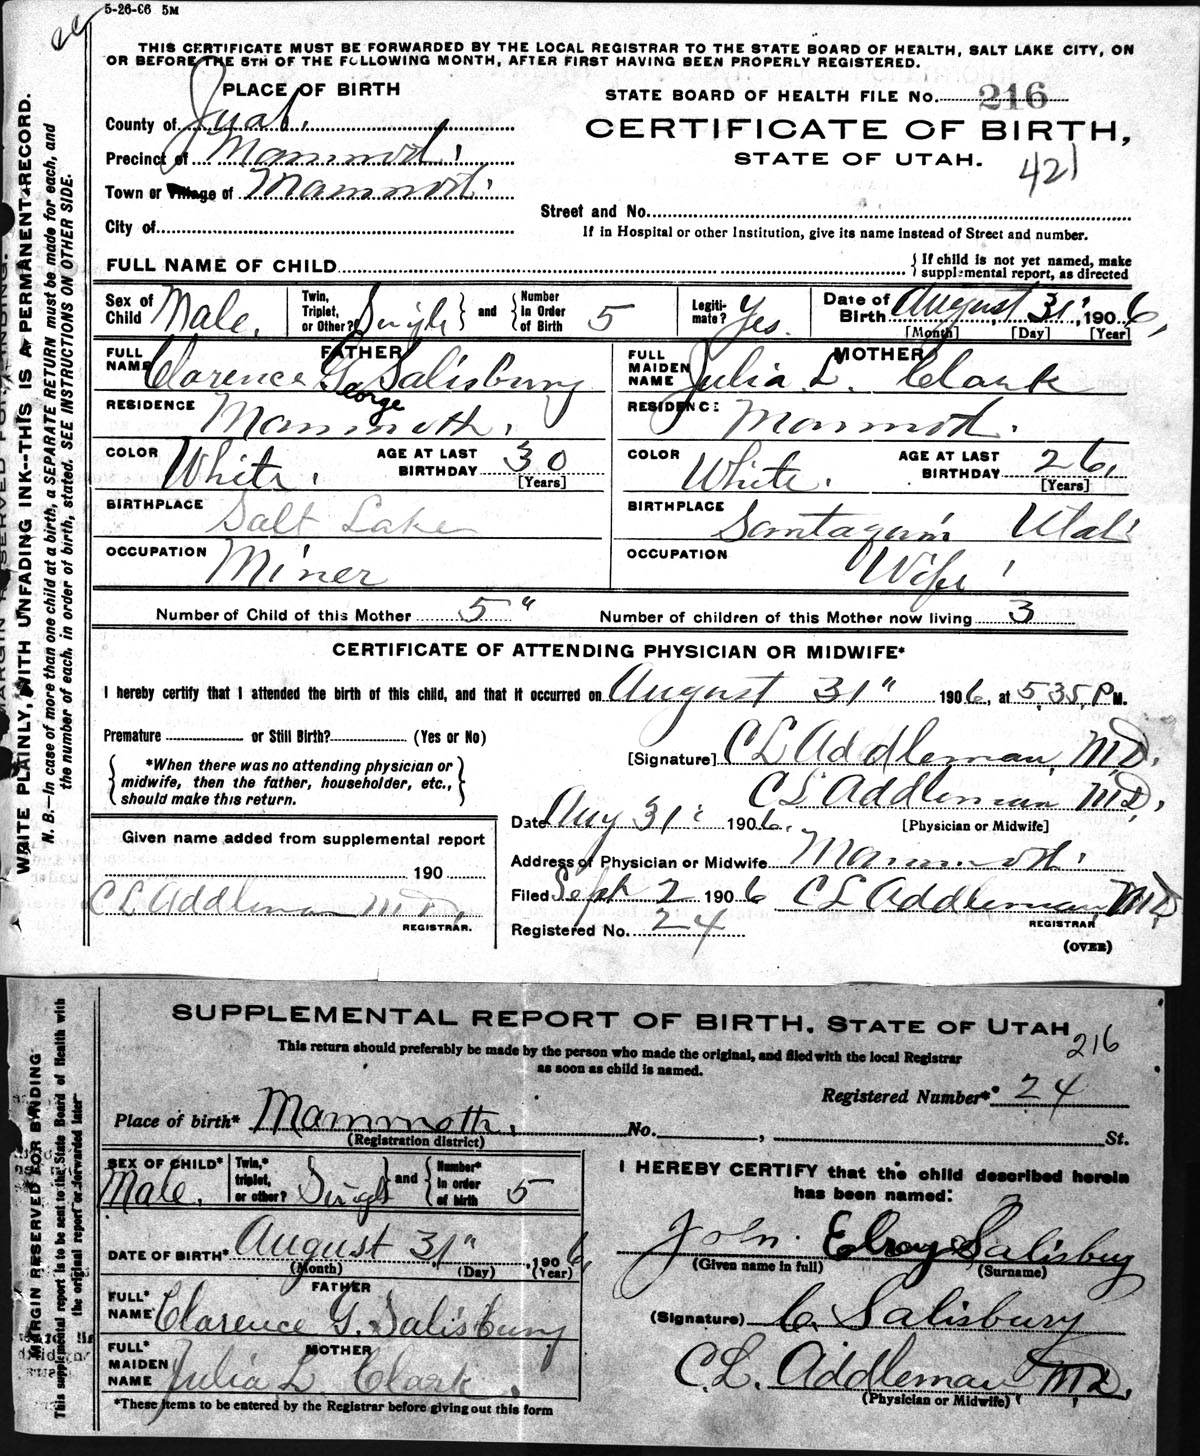 5-26-06 5M
THIS CERTIFICATE MUST BE FORWARDED BY THE LOCAL REGISTRAR TO THE STATE BOARD OF HEALTH, SALT LAKE CITY, ON
OR BEFORE THE 5TH OF THE FOLLOWING MONTH, AFTER FIRST HAVING BEEN PROPERLY REGISTERED.
WRITE PLAINLY, WITH UNFADING INK--THIS IS A PERMANENT RECORD.
N. B.—In case of more than one child at a birth, a SEPARATE RETURN must be made for each, and
the number of each, in order of birth, stated. SEE INSTRUCTIONS ON OTHER SIDE.
PLACE OF BIRTH
STATE BOARD OF HEALTH FILE No. 216
County of Juab.
CERTIFICATE OF BIRTH,
Precinct of Mammoth.
STATE OF UTAH.
421
Town or Village of Mammoth.
City of
Street and No.
If in Hospital or other Institution, give its name instead of Street and number.
FULL NAME OF CHILD
{ If child is not yet named, make
supplemental report, as directed
Sex of Child Male.
Twin, Triplet, or Other? Single } and { Number In Order of Birth 5
Legitimate? Yes.
Date of Birth August 31, 1906,
[Month] [Day] [Year]
FATHER
FULL NAME Clarence G. Salisbury
George
MOTHER
FULL MAIDEN NAME Julia L. Clark
RESIDENCE Mammoth.
RESIDENCE Mammoth.
COLOR White. AGE AT LAST BIRTHDAY 30 [Years]
COLOR White. AGE AT LAST BIRTHDAY 26, [Years]
BIRTHPLACE Salt Lake
BIRTHPLACE Santaquin Utah
OCCUPATION Miner
OCCUPATION Wife
Number of Child of this Mother 5"
Number of children of this Mother now living 3
CERTIFICATE OF ATTENDING PHYSICIAN OR MIDWIFE*
I hereby certify that I attended the birth of this child, and that it occurred on August 31" 1906, at 5,35, P M.
Premature or Still Birth? (Yes or No)
[Signature] C L Addleman, M D.
{ *When there was no attending physician or
midwife, then the father, householder, etc.,
should make this return. }
C L Addleman M D,
[Physician or Midwife]
Date Aug 31 1906.
Address of Physician or Midwife Mammoth.
Filed Sept 2 1906 C L Addleman, M D
REGISTRAR
Registered No. 24
(OVER)
Given name added from supplemental report
190
C L Addleman M D,
REGISTRAR.
SUPPLEMENTAL REPORT OF BIRTH, STATE OF UTAH
216
This return should preferably be made by the person who made the original, and filed with the local Registrar
as soon as child is named.
MARGIN RESERVED FOR BINDING
This supplemental report is to be sent to the State Board of Health with
the original report or forwarded later
Registered Number* 24
Place of birth* Mammoth. No. , St.
(Registration district)
SEX OF CHILD* Male.
Twin,* triplet, or other? Single } and { Number* in order of birth 5
I HEREBY CERTIFY that the child described herein
has been named:
DATE OF BIRTH* August 31" 1906,
(Month) (Day) (Year)
John Elroy Salisbury
(Given name in full) (Surname)
FATHER
FULL* NAME Clarence G. Salisbury
(Signature) C. Salisbury
MOTHER
FULL* MAIDEN NAME Julia L. Clark.
C. L. Addleman M D.
(Physician or Midwife)
*These items to be entered by the Registrar before giving out this form